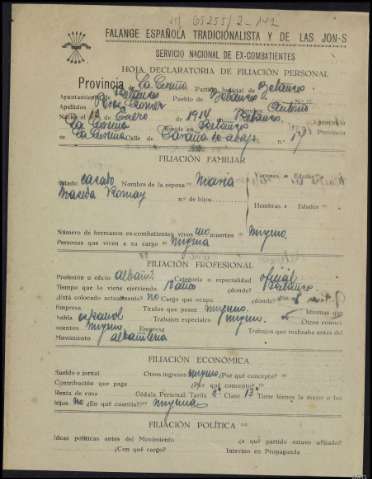 65255/2-142
FALANGE ESPAÑOLA TRADICIONALISTA Y DE LAS JON-S
SERVICIO NACIONAL DE EX-COMBATIENTES
HOJA DECLARATORIA DE FILIACIÓN PERSONAL
Provincia de La Coruña Partido Judicial de Betanzos
Ayuntamiento de Betanzos Pueblo de Betanzos
Apellidos Antonio
Nació el 12 Enero de 1914 Betanzos
La Coruña Betanzos Provincia
La Coruña Calle de abajo n.º
FILIACIÓN FAMILIAR
Estado casado Nombre de la esposa María
n.º de hijos Varones Edades
Hembras Edades
Número de hermanos ex-combatientes vivos uno muertos ninguno
Personas que viven a su cargo ninguna
FILIACIÓN PROFESIONAL
Profesión u oficio albañil Categoría o especialidad oficial
Tiempo que lo viene ejerciendo ¿dónde? Betanzos
¿Está colocado actualmente? no Cargo que ocupa ¿dónde?
Empresa Títulos que posee ninguno Idiomas que
habla español Trabajos especiales ninguno Otros conoci-
mientos ninguno Empresa Trabajos que realizaba antes del
Movimiento albañilería
FILIACIÓN ECONÓMICA
Sueldo o jornal Otros ingresos ninguno ¿Por qué concepto?
Contribución que paga ¿Por qué concepto?
Renta de casa Cédula Personal Tarifa Clase 13ª Tiene bienes la mujer o los
hijos No ¿En qué cuantía? ninguna
FILIACIÓN POLÍTICA
Ideas políticas antes del Movimiento ¿a qué partido estuvo afiliado?
¿Con qué cargo? Intervino en Propaganda